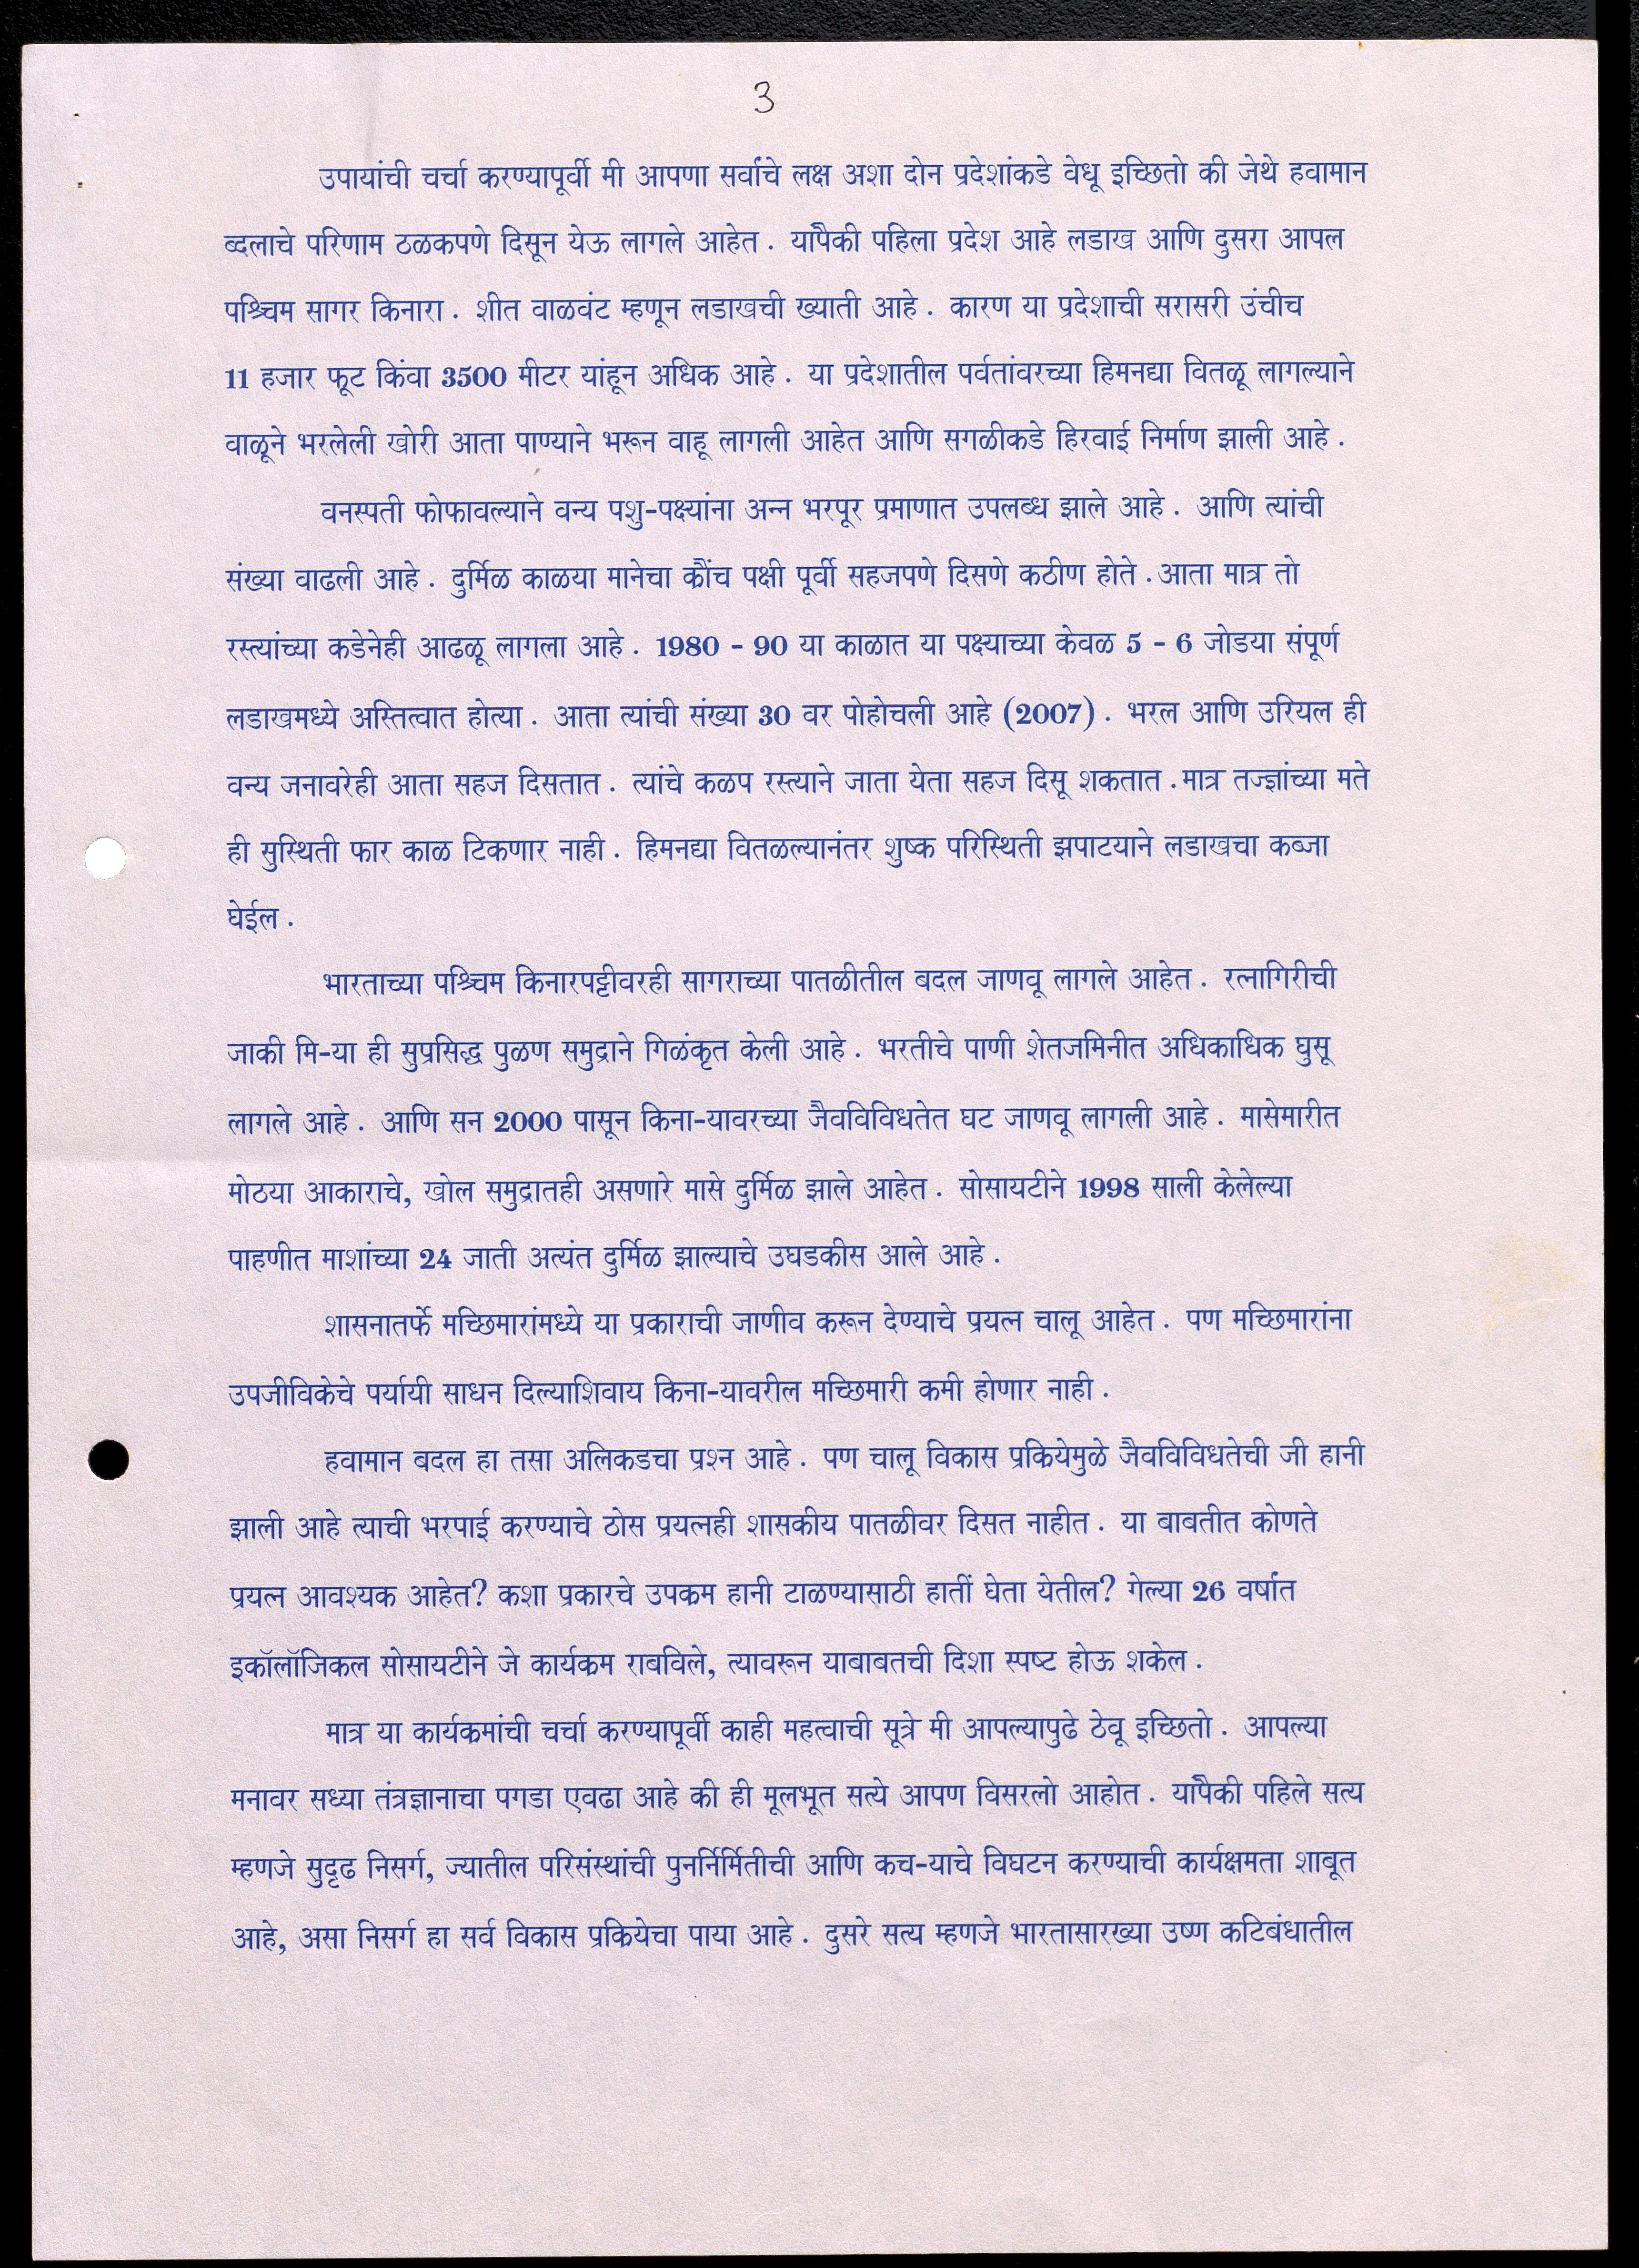 3
उपायांची चर्चा करण्यापूर्वी मी आपणा सर्वांचे लक्ष अशा दोन प्रदेशांकडे वेधू इच्छितो की जेथे हवामान
ब्दलाचे परिणाम ठळकपणे दिसून येऊ लागले आहेत. यांपैकी पहिला प्रदेश आहे लडाख आणि दुसरा आपल
पश्चिम सागर किनारा. शीत वाळवंट म्हणून लडाखची ख्याती आहे. कारण या प्रदेशाची सरासरी उंचीच
11 हजार फूट किंवा 3500 मीटर यांहून अधिक आहे. या प्रदेशातील पर्वतांवरच्या हिमनद्या वितळू लागल्याने
वाळूने भरलेली खोरी आता पाण्याने भरून वाहू लागली आहेत आणि सगळीकडे हिरवाई निर्माण झाली आहे.
वनस्पती फोफावल्याने वन्य पशु-पक्ष्यांना अन्न भरपूर प्रमाणात उपलब्ध झाले आहे. आणि त्यांची
संख्या वाढली आहे. दुर्मिळ काळया मानेचा क्रौंच पक्षी पूर्वी सहजपणे दिसणे कठीण होते. आता मात्र तो
रस्त्यांच्या कडेनेही आढळू लागला आहे. 1980 - 90 या काळात या पक्ष्याच्या केवळ 5 - 6 जोडया संपूर्ण
लडाखमध्ये अस्तित्वात होत्या. आता त्यांची संख्या 30 वर पोहोचली आहे (2007). भरल आणि उरियल ही
वन्य जनावरेही आता सहज दिसतात. त्यांचे कळप रस्त्याने जाता येता सहज दिसू शकतात. मात्र तज्ज्ञांच्या मते
ही सुस्थिती फार काळ टिकणार नाही. हिमनद्या वितळल्यानंतर शुष्क परिस्थिती झपाटयाने लडाखचा कब्जा
घेईल.
भारताच्या पश्चिम किनारपट्टीवरही सागराच्या पातळीतील बदल जाणवू लागले आहेत. रत्नागिरीची
जाकी मि-या ही सुप्रसिद्ध पुळण समुद्राने गिळंकृत केली आहे. भरतीचे पाणी शेतजमिनीत अधिकाधिक घुसू
लागले आहे. आणि सन 2000 पासून किना-यावरच्या जैवविविधतेत घट जाणवू लागली आहे. मासेमारीत
मोठया आकाराचे, खोल समुद्रातही असणारे मासे दुर्मिळ झाले आहेत. सोसायटीने 1998 साली केलेल्या
पाहणीत माशांच्या 24 जाती अत्यंत दुर्मिळ झाल्याचे उघडकीस आले आहे.
शासनातर्फे मच्छिमारांमध्ये या प्रकाराची जाणीव करून देण्याचे प्रयत्न चालू आहेत. पण मच्छिमारांना
उपजीविकेचे पर्यायी साधन दिल्याशिवाय किना-यावरील मच्छिमारी कमी होणार नाही.
हवामान बदल हा तसा अलिकडचा प्रश्न आहे. पण चालू विकास प्रक्रियेमुळे जैवविविधतेची जी हानी
झाली आहे त्याची भरपाई करण्याचे ठोस प्रयत्नही शासकीय पातळीवर दिसत नाहीत. या बाबतीत कोणते
प्रयत्न आवश्यक आहेत? कशा प्रकारचे उपक्रम हानी टाळण्यासाठी हातीं घेता येतील? गेल्या 26 वर्षांत
इकॉलॉजिकल सोसायटीने जे कार्यक्रम राबविले, त्यावरून याबाबतची दिशा स्पष्ट होऊ शकेल.
मात्र या कार्यक्रमांची चर्चा करण्यापूर्वी काही महत्वाची सूत्रे मी आपल्यापुढे ठेवू इच्छितो. आपल्या
मनावर सध्या तंत्रज्ञानाचा पगडा एवढा आहे की ही मूलभूत सत्ये आपण विसरलो आहोत. यांपैकी पहिले सत्य
म्हणजे सुदृढ निसर्ग, ज्यातील परिसंस्थांची पुनर्निर्मितीची आणि कच-याचे विघटन करण्याची कार्यक्षमता शाबूत
आहे, असा निसर्ग हा सर्व विकास प्रक्रियेचा पाया आहे. दुसरे सत्य म्हणजे भारतासारख्या उष्ण कटिबंधातील